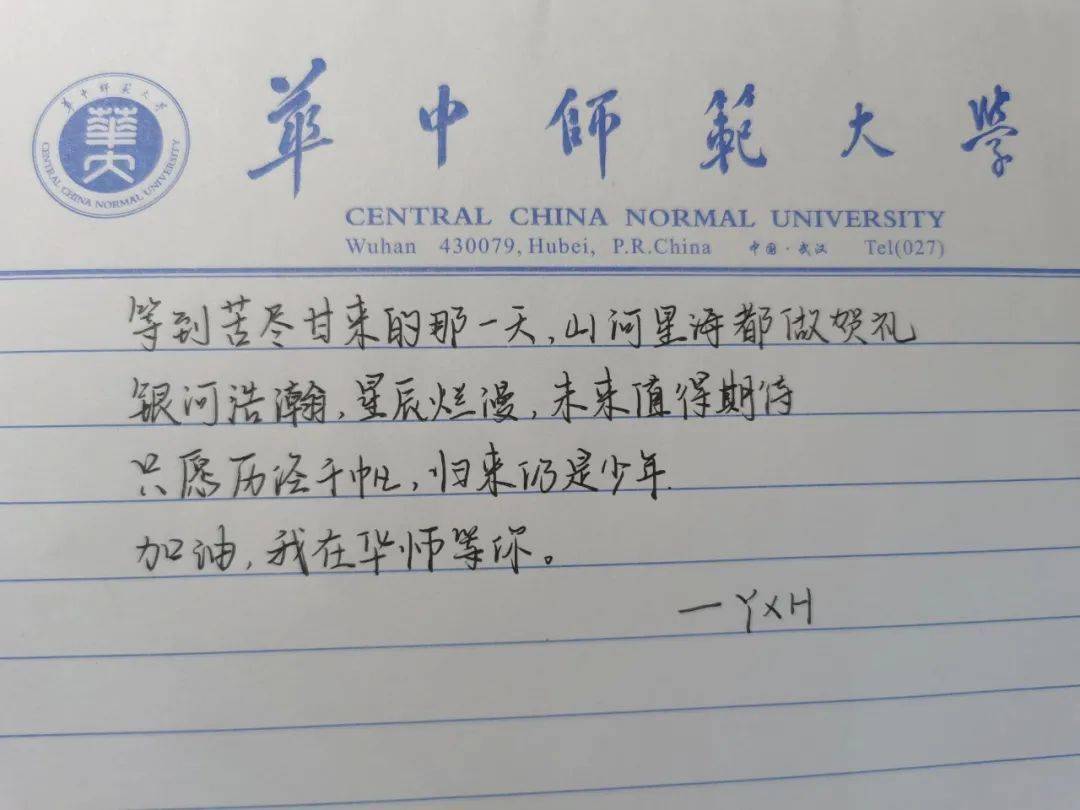 華中師範大学
華大
CENTRAL CHINA NORMAL UNIVERSITY
華中師範大學
CENTRAL CHINA NORMAL UNIVERSITY
Wuhan 430079, Hubei, P.R.China 中国·武汉 Tel(027)
等到苦尽甘来的那一天,山河星海都做贺礼
银河浩瀚,星辰烂漫,未来值得期待
只愿历经千帆,归来仍是少年.
加油,我在华师等你。
—YXH